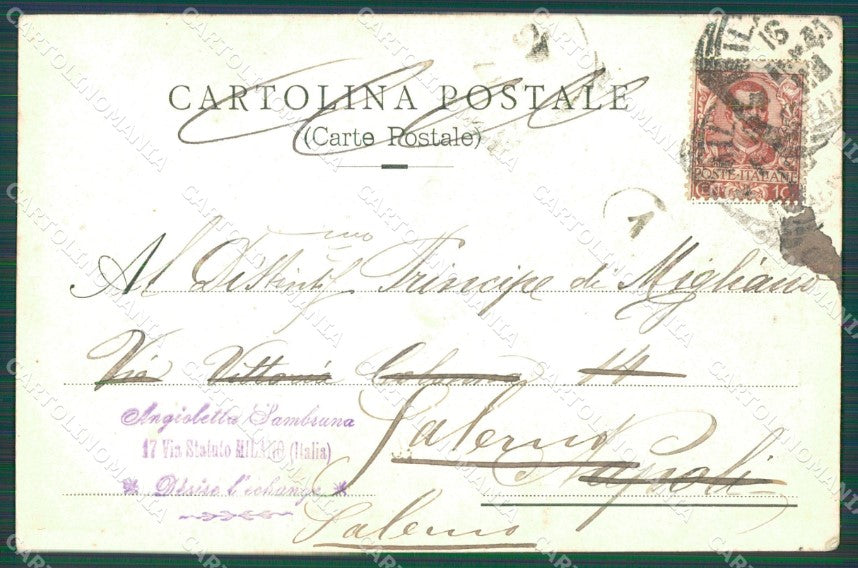 CARTOLINA POSTALE
(Carte Postale)
POSTE·ITALIANE
CEN. 10
1
Al Distint.mo Principe di Migliano
Via Vittoria Colonna 14
Salerno
Napoli
Angioletta Sambruna
17 Via Statuto MILANO (Italia)
* Désire l'échange *
Salerno
CARTOLINOMANIA